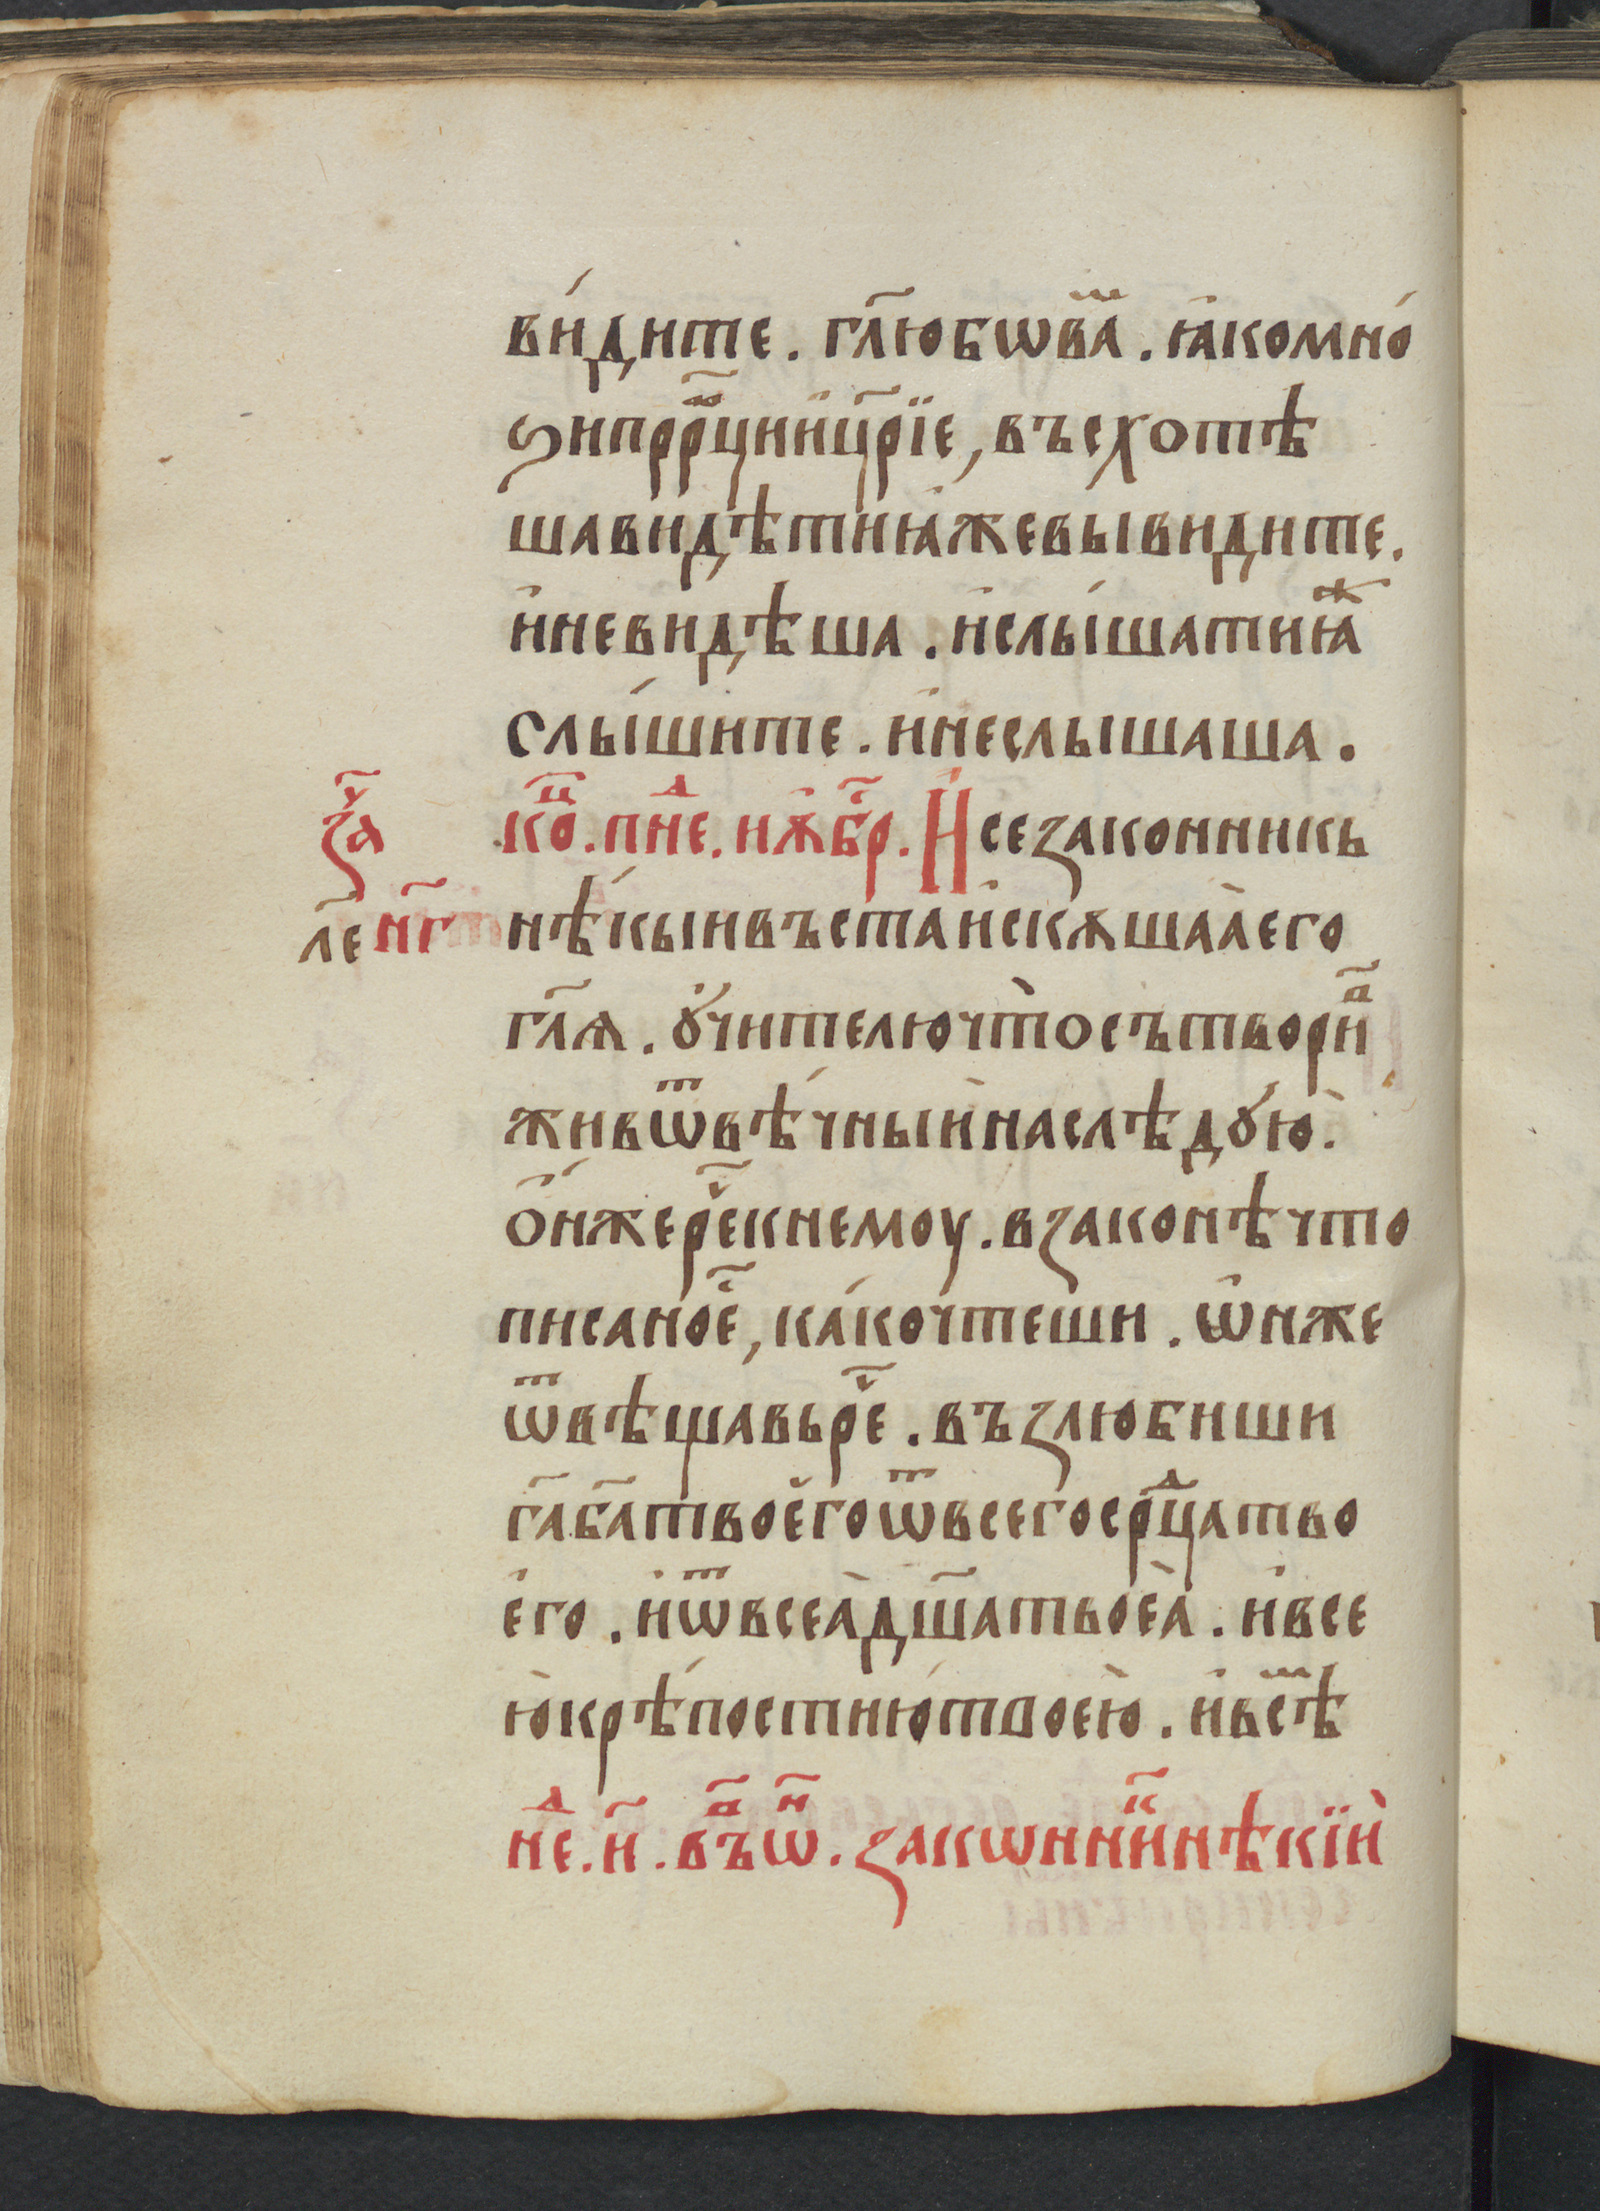 ви́дите. гл҃юбѡва̾ⷲ҇. ꙗ҆комно́
ѕипррⷪ҇ции҆цр҃їе, въсхотѣ
шавидѣтиꙗ҆жевывидите.
и҆невидѣша. и҆слы́шатиꙗ҆ⷤ
слы́шите. и҆неслышаша.
зⷱ҇а
коⷰ҇. пнⷣе. нѫбрⷭ҇. И҆сезаконникь
ле҃ н҃г
нѣ́кыивъстаи҆скѫшаа̀его
гл҃ѧ. ᲂу҆чителючто̀сътвориⷫ҇
живѿвѣ́чныйнаслѣдꙋю̀.
о҆́нжереⷱ҇кнемоу. взаконѣчто
писаноеⷭ҇, ка́кочтеши. ѡ҆нже
ѿвѣщавьреⷱ҇. възлюбиши
га҃ба҃твоегоѿвсегосрⷣцатво
его. и҆ѿвсеа̀дш҃атвоеа̀. и҆все
ю̀крѣ́постию́твоею̀. и҆всⷨѣ
неⷣ. и҃. въⷫ҇ѡⷩ҇. закѡнниⷦ҇нѣкїи҆̀